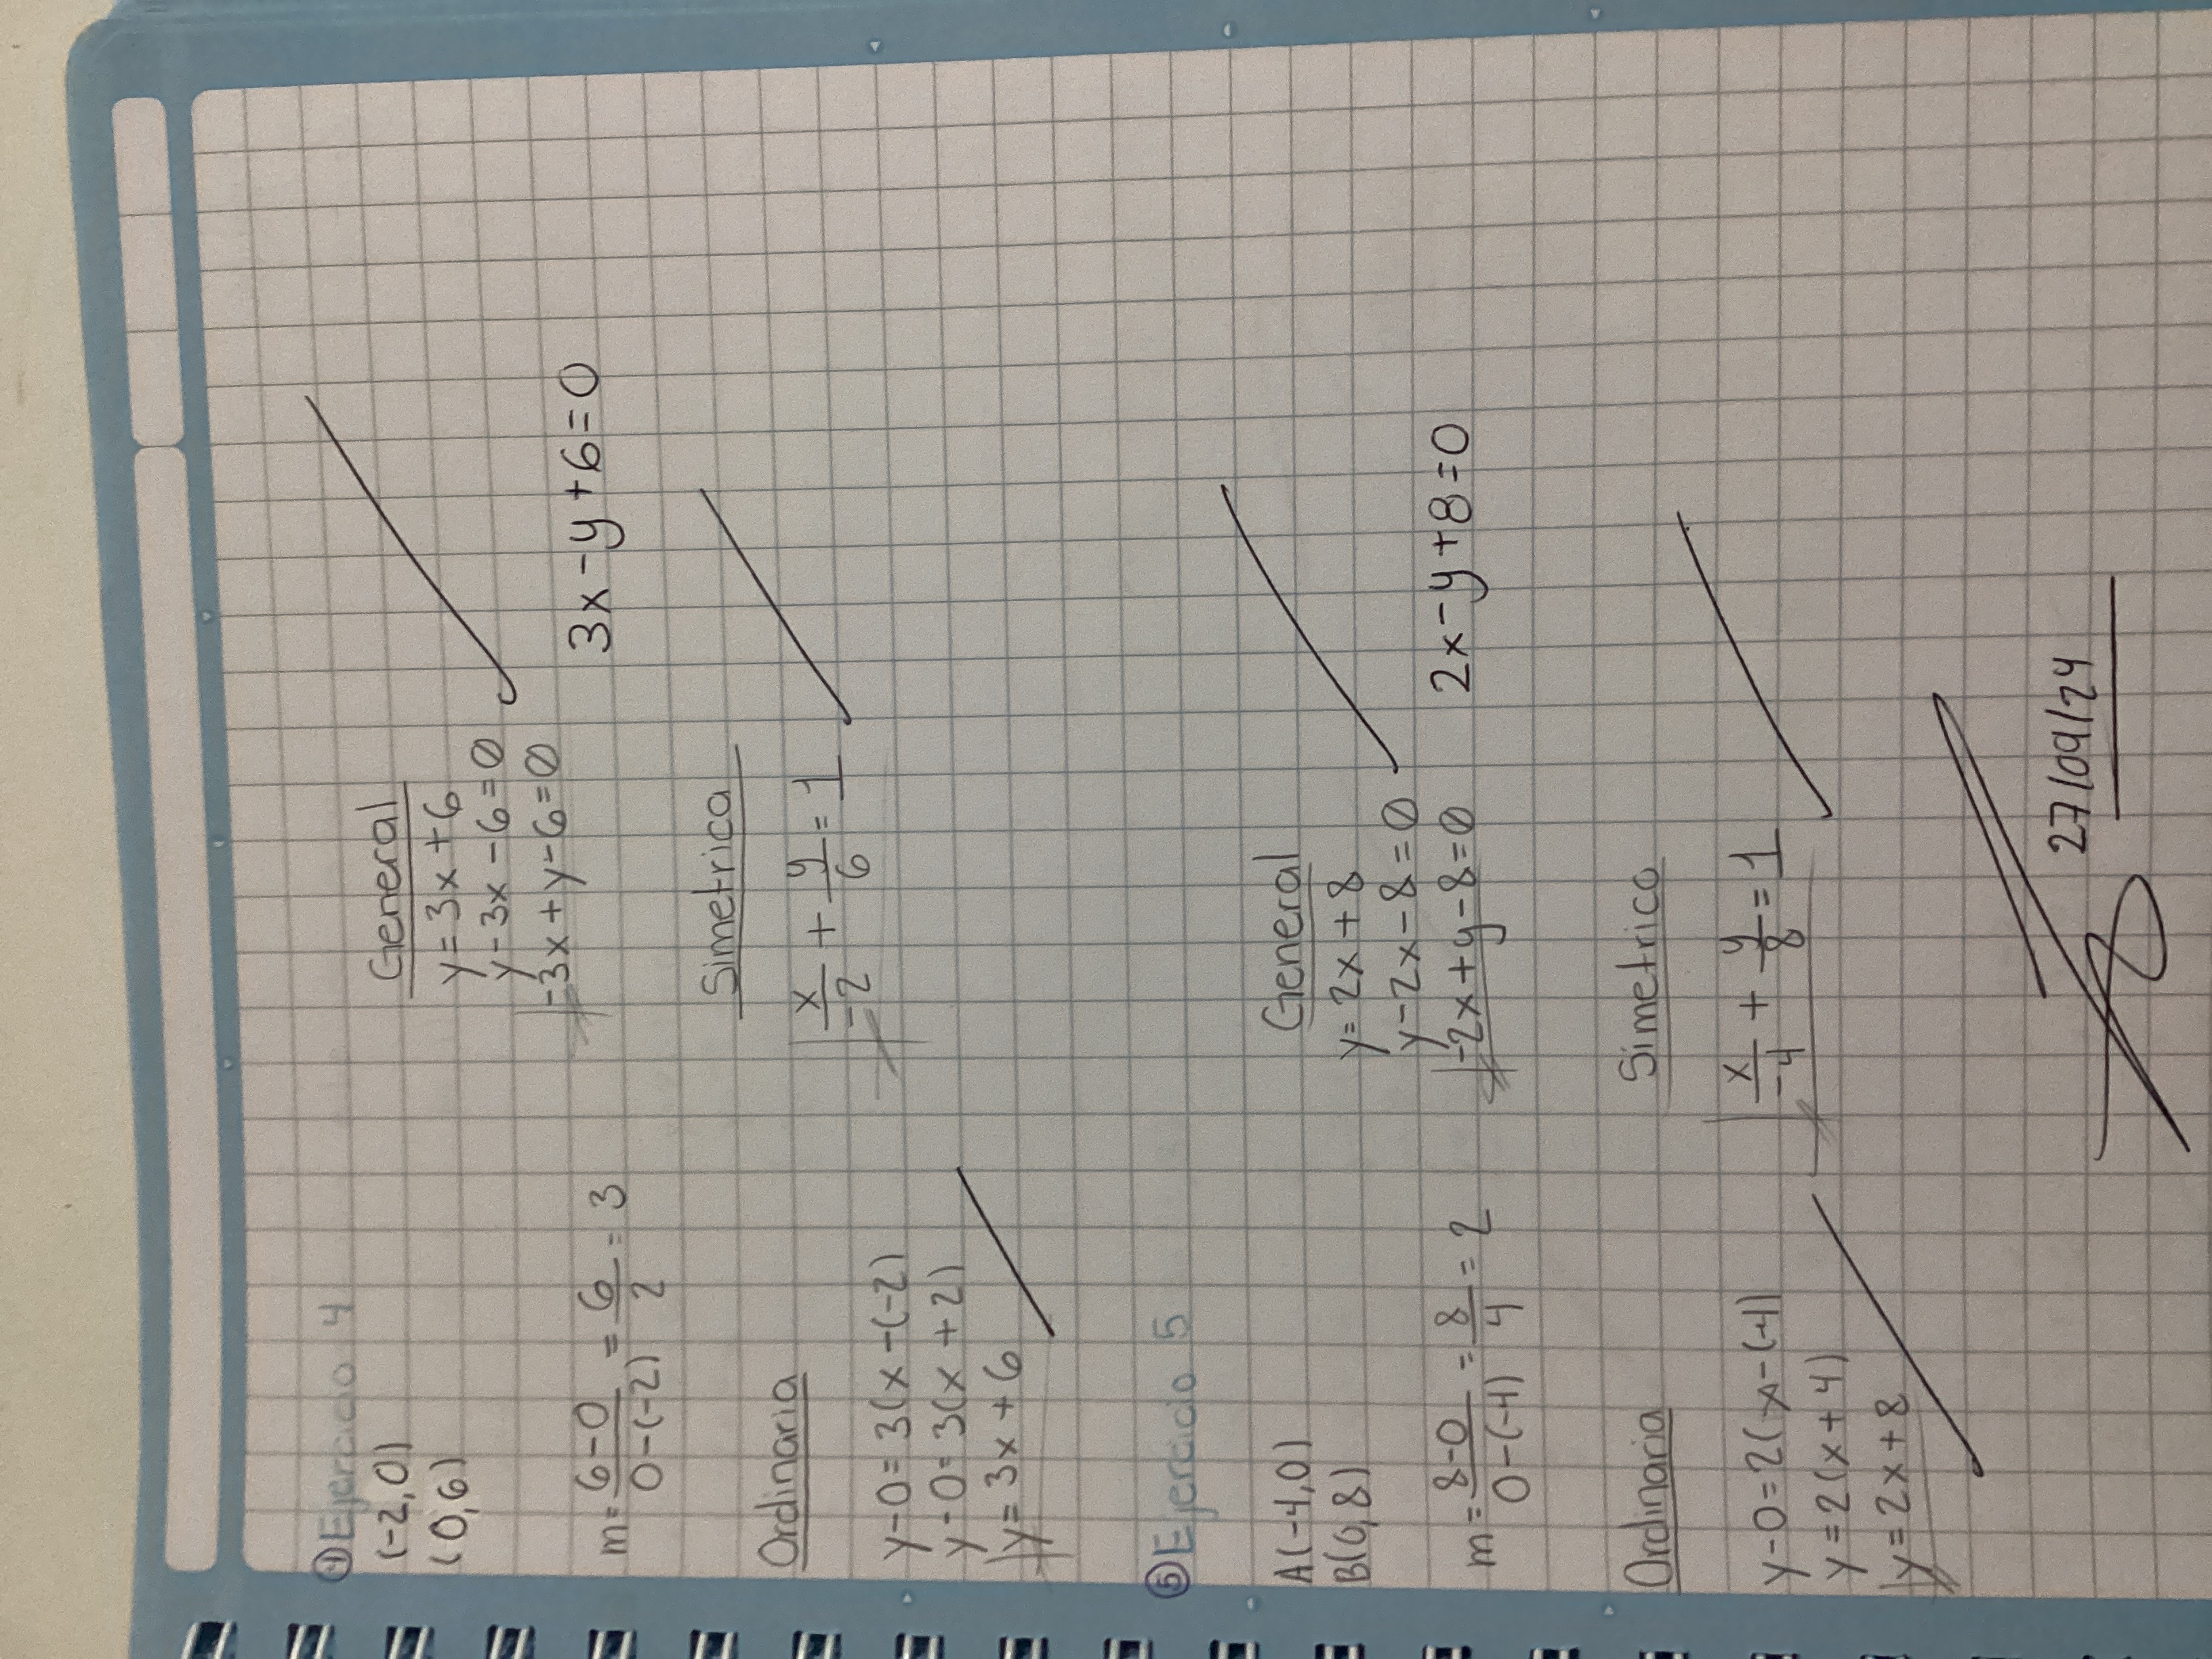 ④Ejercicio 4
(-2,0)
(0,6)
m = 6-0 / 0-(-2) = 6/2 = 3
Ordinaria
y-0=3(x-(-2)
y-0=3(x+2)
y=3x+6
General
y=3x+6
y-3x-6=0
-3x+y-6=0
3x-y+6=0
Simetrica
x/-2 + y/6 = 1
⑤Ejercicio 5
A(-4,0)
B(0,8)
m = 8-0 / 0-(-4) = 8/4 = 2
Ordinaria
y-0=2(x-(-4)
y=2(x+4)
y=2x+8
General
y=2x+8
y-2x-8=0
-2x+y-8=0
2x-y+8=0
Simetrico
x/-4 + y/8 = 1
27/09/24